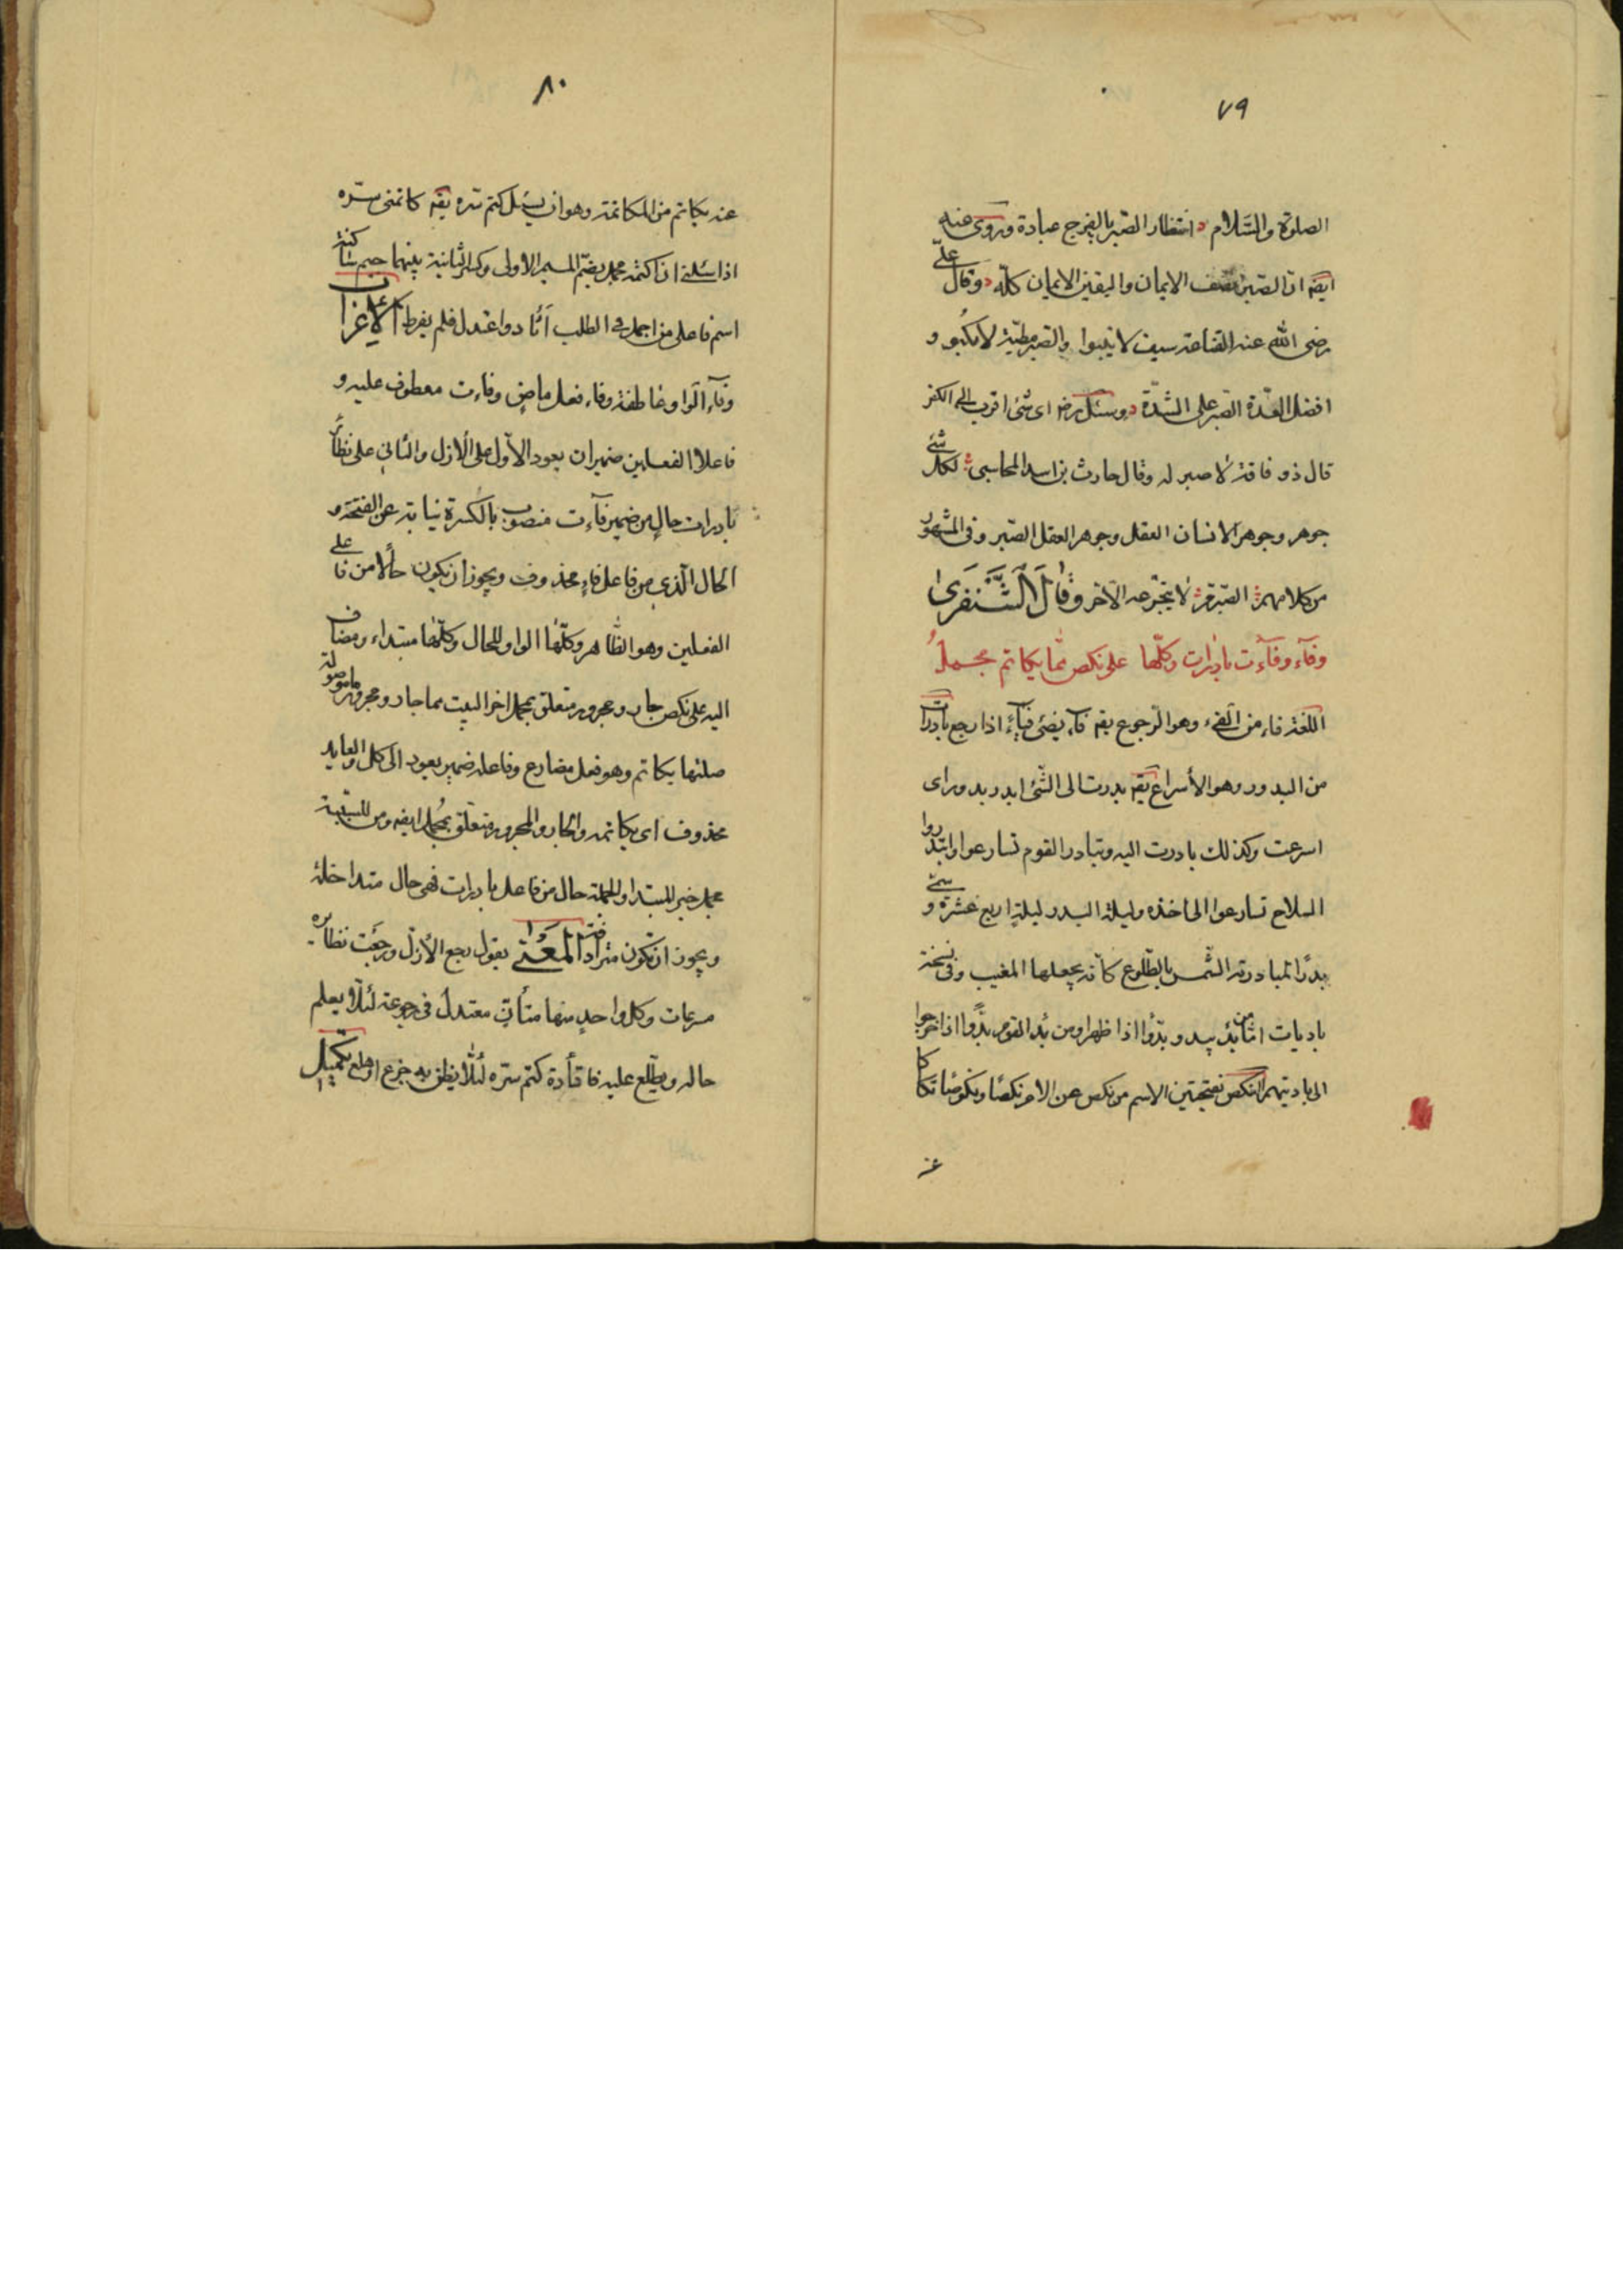 ٧٩
الصلوة والسّلام انتظار الصّبر بالفرج عبادة وروى عنه
ايضه ان الصبر نصف الايمان واليقين الايمان كلّه وقال علىّ
رضى الله عنه القناعة سيف لا ينبوا والصّبر مطيّة لا تكبُو و
افضل العدّة الصّبر على الشدّة وسئل رضـ اى شئ اقرب الى الكفر
قال ذو فاقة لا صبر له وقال حارث بن اسد المحاسبى لكل شئ
جوهر وجوهر الانسان العقل وجوهر العقل الصّبر وفى المشهور
من كلامهم الصّبر مُرّ لا يتجرّعه الّا حر وقَالَ الشَّنْفَرىٰ
وفآء وفآءت بادرات وكلّها على نكص ممّا يكاتم مجملُ
اللّغة فاء من الفىء وهو الرّجوع يقه فآء يفئ فيأً اذا رجع بادرات
من البدور وهو الأسراع يقه بدرت الى الشّئ ابدر بدورا اى
اسرعت وكذلك بادرت اليه وتبادر القوم تسارعوا وابتدروا
السلاح تسارعوا الى اخذه وليلة البدر ليلة اربع عشرة وسمّى
بدرًا لمبادرته الشّمس بالطّلوع كأنّه يعجلها المغيب وفى نسخة
باديات امّا من بدَى يبدو بدّوا اذا ظهر او من بدَا القوم بدّوا اذا خرجوا
الى باديتهم النكص بفتحتين الاسم من نكص عن الامر نكصًا ونكوصًا تكاكا
عنه
٨٠
عنه يكاتم من المكاتمة وهو ان يسئل كتم سّره يقه كاتمنى سرّه
اذا سئلنى ان اكتمه مجمل بضمّ الميم الاولى وكسر الثانية بينهما جيم ساكنة
اسم فاعل من اجمل فى الطلب اتّاد واعتدل فلم يفرط الاعراب
وفآء الواو عاطفة وفاء فعل ماض وفاءت معطوف عليه و
فاعلا الفعلين ضميران يعود الأوّل على الازل والثانى على نظائر
بادرات حال من ضمير فآءت منصوب بالكسرة نيابة عن الفتحة و
الحال الّذى من فاعل فاء محذوف ويجوز ان يكون حالًا من فاعلى
الفعلين وهو الظّاهر وكلّها الواو للحال وكلّها مبتداء ومضاف
اليه على نكص جار ومجرور متعلق بمجمل اخر البيت مما جار ومجرور ما موصولة
صلتها يكاتم وهو فعل مضارع وفاعله ضمير يعود الى كل والعايد
محذوف اى يكاتمه والجار والمجرور متعلّق بمُجمل ايضه ومن للسّببيّة
مجمل خبر للمبتدا والجملة حال من فاعل بادرات فهى حال متداخلة
ويجوز ان تكون مترادفة المَعْنىٰ يقول رجع الأزل ورجعت نظائره
مسرعات وكل واحد منها متأنّ معتدل فى رجوعه لئلّا يعلم
حاله ويطّلع عليه فاقتأدة كتم سّره لئلّا يظنّ به جزع او هلع تكميل